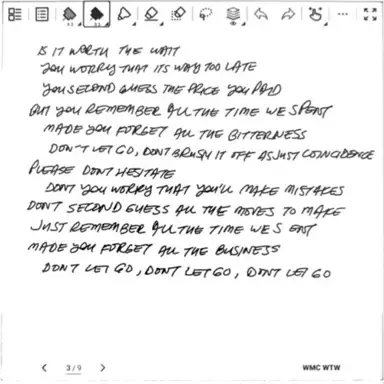 IS IT WORTH THE WAIT
YOU WORRY THAT ITS WAY TOO LATE
YOU SECOND GUESS THE PRICE YOU PAID
BUT YOU REMEMBER ALL THE TIME WE SPENT
MADE YOU FORGET ALL THE BITTERNESS
DON'T LET GO, DONT BRUSH IT OFF AS JUST COINCIDENCE
PLEASE DONT HESITATE
DONT YOU WORRY THAT YOU'LL MAKE MISTAKES
DONT SECOND GUESS ALL THE MOVES TO MAKE
JUST REMEMBER ALL THE TIME WE S ENT
MADE YOU FORGET ALL THE BUSINESS
DON'T LET GO, DON'T LET GO, DON'T LET GO
3/9
WMC WTW